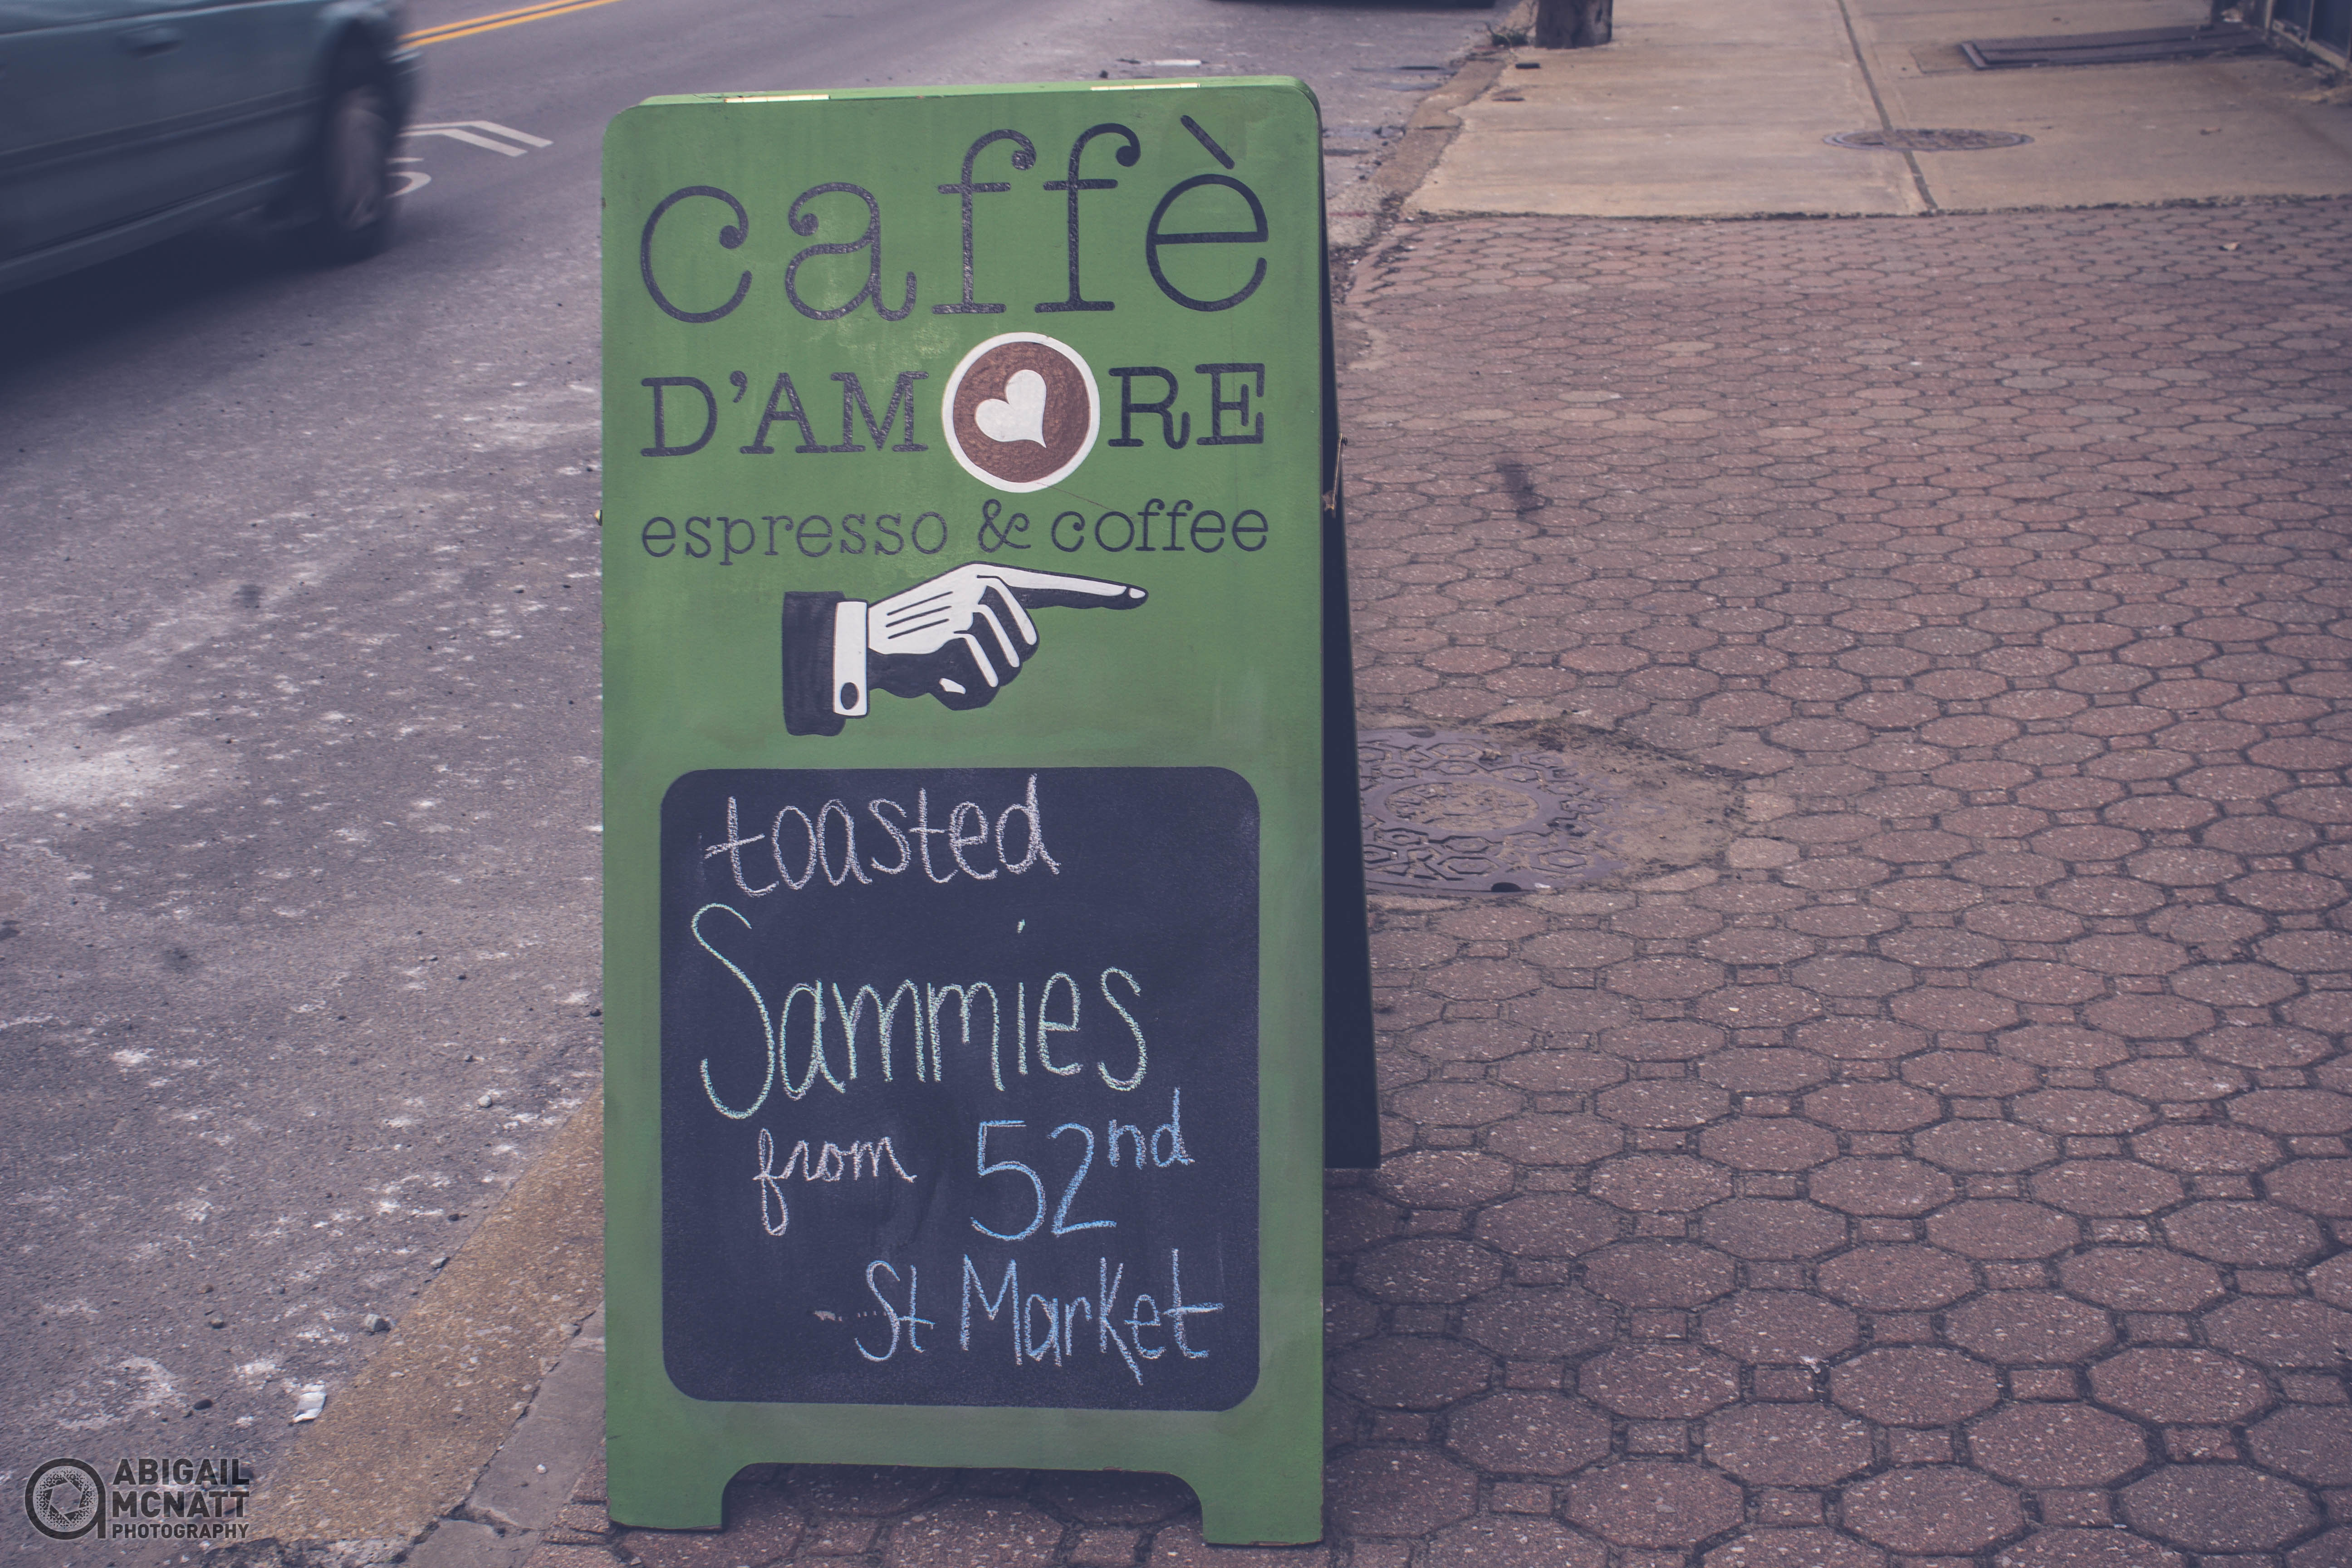 caffè
D'AMORE
espresso & coffee
toasted
Sammies
from 52nd
St Market
ABIGAIL
MCNATT
PHOTOGRAPHY